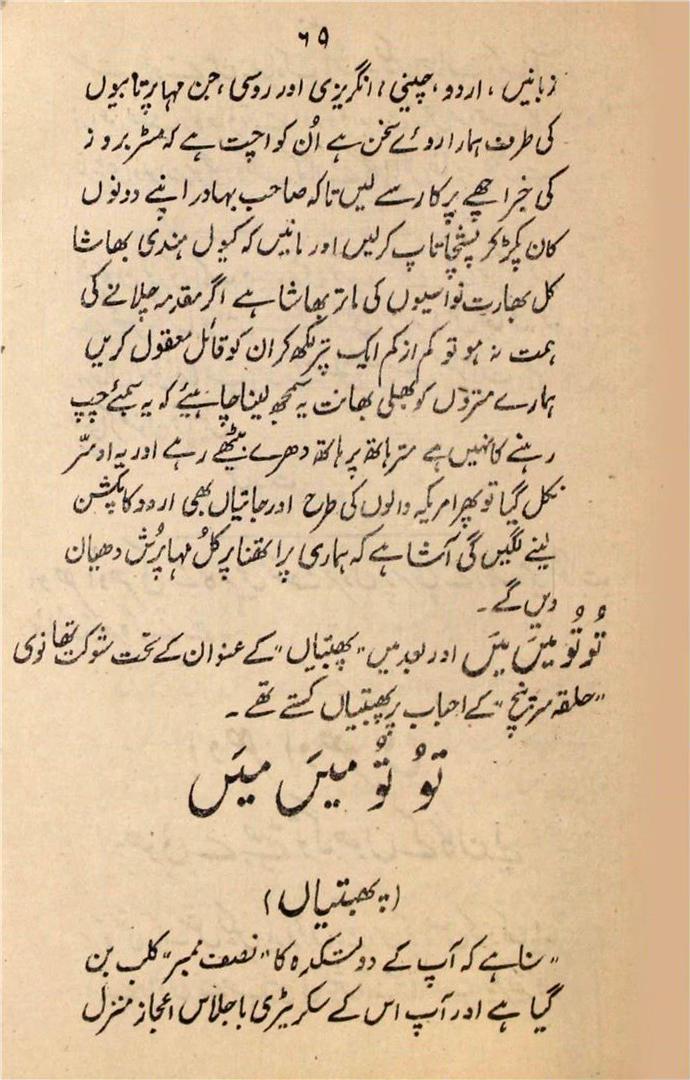 ۶۵
زبانیں، اردو، چینی، انگریزی اور روسی، جن مہا پرتاپیوں
کی طرف ہمارا روئے سخن ہے اُن کو اچت ہے کہ مسٹر بروز
کی خبر اچھے پرکار سے لیں تاکہ صاحب بہادر اپنے دونوں
کان پکڑ کر پشچاتاپ کرلیں اور مانیں کہ کیول ہندی بھاشا
کل بھارت نواسیوں کی ماتر بھاشا ہے اگر مقدمہ چلانے کی
ہمت نہ ہو تو کم از کم ایک پتر لکھ کر ان کو قائل معقول کریں
ہمارے متروں کو بھلی بھانت یہ سمجھ لینا چاہیئے کہ یہ سمئے چپ
رہنے کا نہیں ہے متر ہاتھ پر ہاتھ دھرے بیٹھے رہے اور یہ اوسّر
نکل گیا تو پھر امریکہ والوں کی طرح اور جاتیاں بھی اردو کا پکشن
لینے لگیں گی آشا ہے کہ ہماری پرارتھنا پر کُل مہا پُرش دھیان
دیں گے۔
تُو تُو میَں میَں اور بعد میں "پھبتیاں" کے عنوان کے تحت شوکت تھانوی
"حلقہ سرپنچ" کے احباب پر پھبتیاں کستے تھے۔
تُو تُو میَں میَں
(پھبتیاں)
"سنا ہے کہ آپ کے دولتکدہ کا "نصف ممبر" کلب بن
گیا ہے اور آپ اس کے سکریٹری باجلاس اعجاز منزل